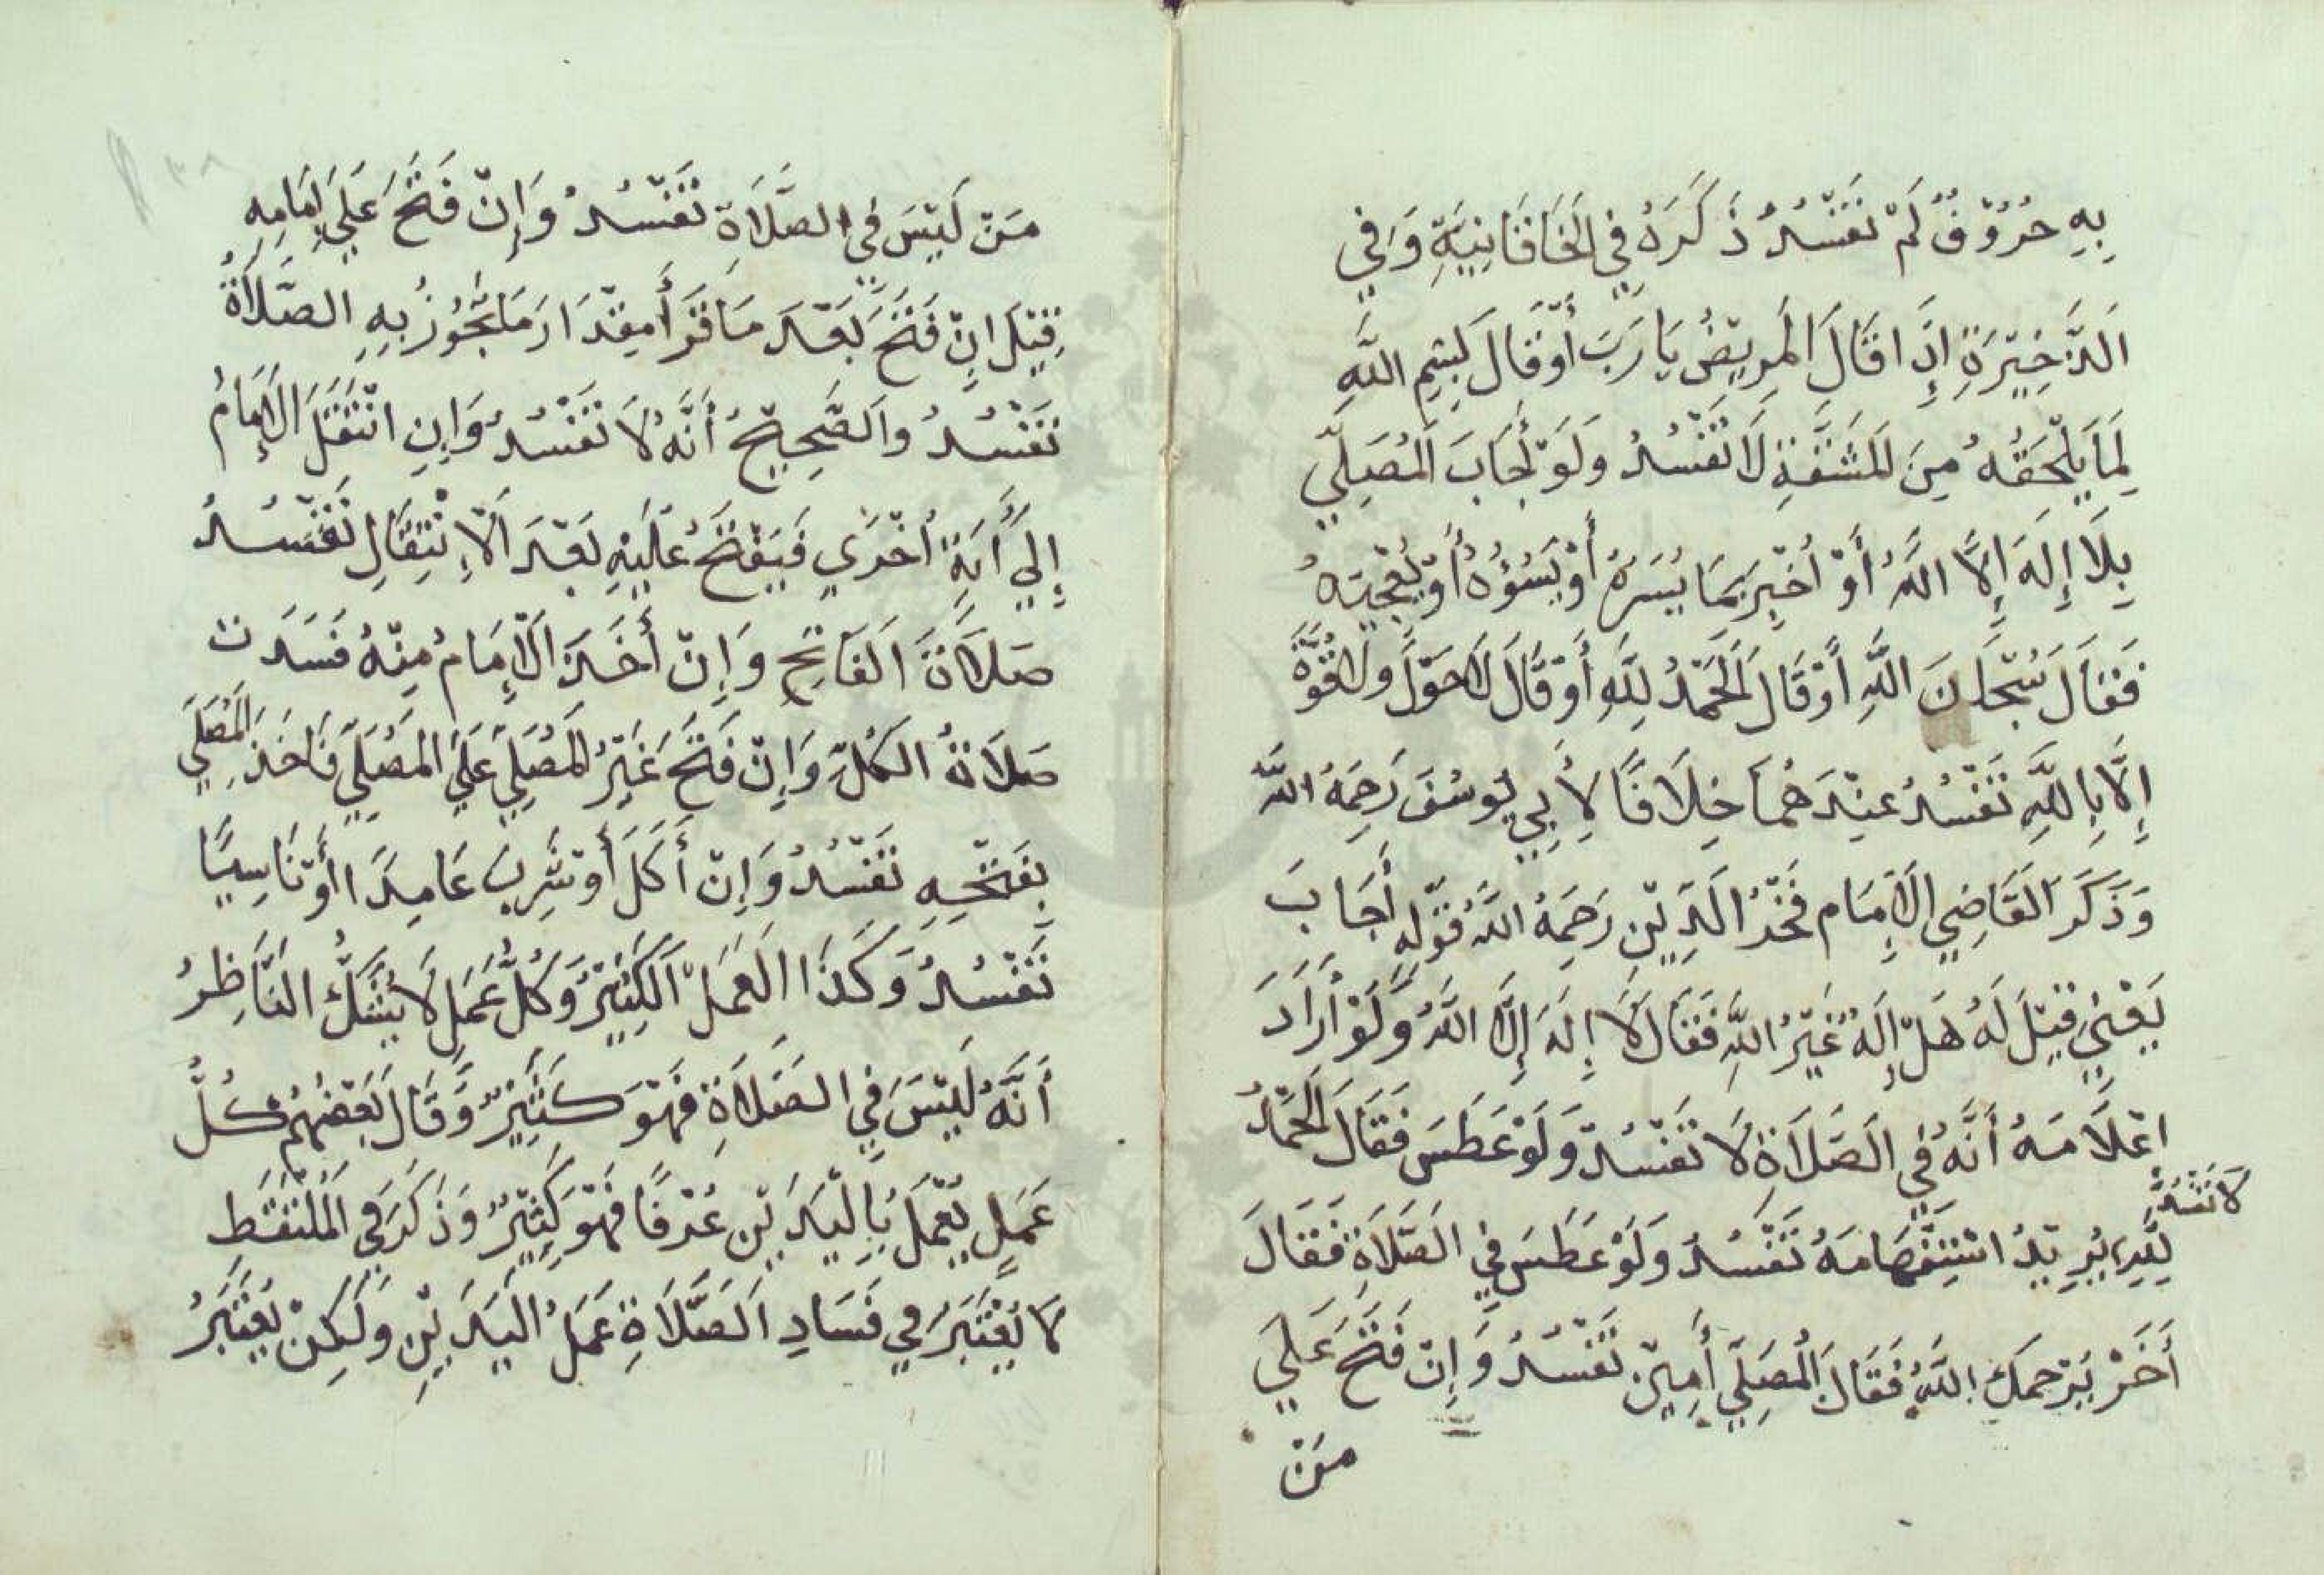 بِهِ حُرُوْفٌ لَمْ تَفْسُدْ ذَكَرَهُ فِي الْخَاقَانِيَّةِ وَفِي
الَذَّخِيْرَةِ إِذَا قَالَ الْمَرِيْضُ يَارَبَ أَوْقَالَ بِسْمِ اللَّهِ
لِمَا يَلْحَقُهُ مِنَ الْمَشَقَّةِ لَا تَفْسُدُ وَلَوْ أَجَابَ الْمُصَلِّي
بِلَا إِلَهَ إِلَّا اللَّهُ أَوْ أُخْبِرَ بِمَا يَسُرَهُ أَوْ يَسُؤُهُ أَوْ يُعْجِبُهُ
فَقَالَ سُبْحَانَ اللَّهِ أَوْقَالَ الْحَمْدُ لِلَّهِ أَوْقَالَ لَاحَوْلَ وَلَاقُوَّةَ
إِلَّا بِاللَّهِ تَفْسُدُ عِنْدَهُمَا خِلَافًا لِأَبِي يُوسُفَ رَحِمَهُ اللَّهُ
وَذَكَرَ الْقَاضِي الْإِمَام فَخْرُ الَدِيْنِ رَحِمَهُ اللَّهُ قَوْلَه أَجَابَ
يَعْنِيْ قِيْلَ لَهُ هَلْ إِلَهٌ غَيْرُ اللَّهِ فَقَالَ لَا إِلَهَ إِلَّا اللَّهُ وَلَوْ أَرَادَ
اعْلَامَهُ أَنَّهُ فِي الصَلَاةِ لَا تَفْسُدْ وَلَوْ عَطَسَ فَقَالَ الْحَمْدُ
لَا تَفْسُدُ
لِلَّهِ يُرِيْدُ اسْتِفْهَامَهُ تَفْسُدُ وَلَوْ عَطَسَ فِي الصَّلَاةِ فَقَالَ
أَخَرُ يَرْحَمكَ اللَّهُ فَقَالَ الْمُصَلِّي أَمِيْن تَفْسُدُ وَإِنْ فَتَحَ عَلَي
مَنْ
مَنْ لَيْسَ فِي الصَّلَاةِ تَفْسُدُ وَإِنْ فَتَحَ عَلَي إِمَامِهِ
قِيْلَ انْ فَتَحَ بَعْدَ مَا قَرَأَ مِقْدَارَ مَا يَجُوْزُ بِهِ الصَّلَاةُ
تَفْسُدُ وَالصَّحِيْحُ أَنَّهُ لَا تَفْسُدُ وَإِنِ انْتَقَلَ الْإِمَامُ
إِلَي أَيَةٍ أُخْرَي فَيَفْتَحُ عَلَيْهِ بَعْدَ الْإِنْتِقَالِ تَفْسُدُ
صَلَاةُ الْفَاتِحِ وَإِنْ أَخَذَ الْإِمَامُ مِنْهُ فَسَدَتْ
صَلَاةُ الْكُلِّ وَإِنْ فَتَحَ غَيْرُ الْمُصَلِّي عَلَي الْمُصَلِّي فَأَخَذَ الْمُصَلِّي
بِفَتْحِهِ تَفْسُدُ وَإِنْ أَكَلَ أَوْ شَرِبَ عَامِدًا أَوْ نَاسِيًا
تَفْسُدُ وَكَذَا الْعَمَلُ الْكَثِيْرُ وَكُلُّ عَمَلٍ لَا يَشُكُّ النَّاظِرُ
أَنَّهُ لَيْسَ فِي الصَلَاةِ فَهُوَ كَثِيْرٌ وَقَالَ بَعْضُهُمْ كُلُّ
عَمَلٍ يُعْمَلُ بِالْيَدَيْنِ عُرْفًا فَهُوَ كَثِيْرٌ وَذَكَرَ فِي الْمُلْتَقَطِ
لَا يُعْتَبَرُ فِي فَسَادِ الصَّلَاةِ عَمَلُ الْيَدَيْنِ وَلَكِنْ يُعْتَبَرُ